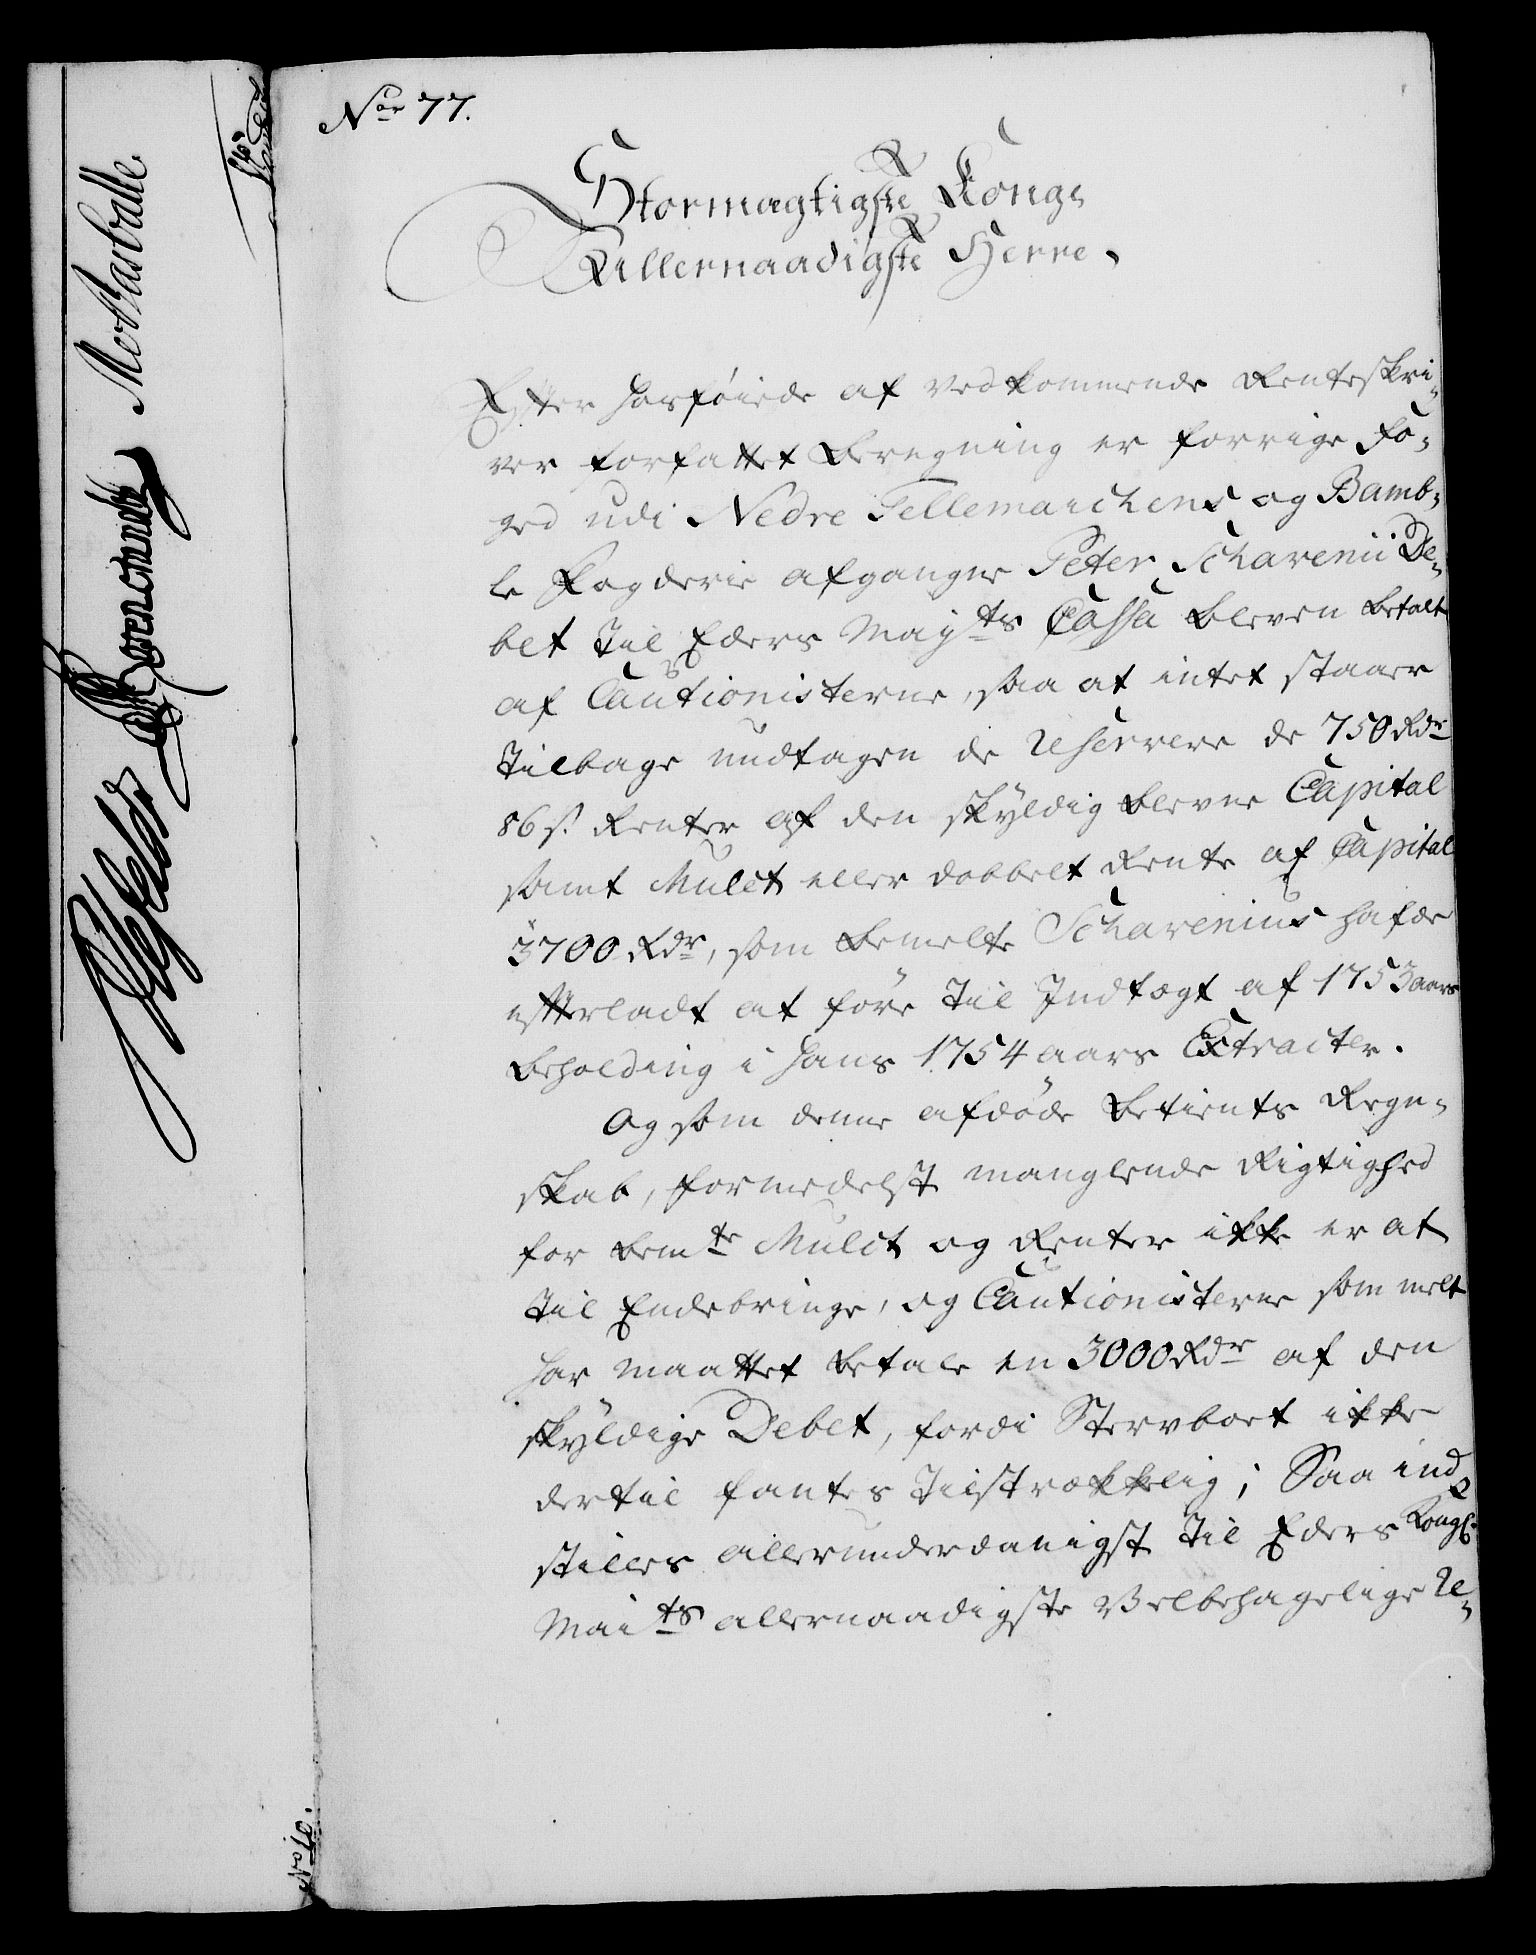 No 77.
Stormagtigste Konge
Allernaadigste Herre.
Efter hosföiede af vedkommende Renteskri-
ver forfattet Beregning er forrige Fo-
ged udi Nedre Tellemarchens og Bamb-
le Fogderie afgangne Peter Scharenii De-
bet til Eders Mayts Cassa bleven betalt
af Cautionisterne, saa at intet staaer
tilbage undtagen de reserverede 750 Rdr
86 s. Renter af den skyldig blevne Capital
samt Mulct eller dobbelt Rente af Capital
3700 Rdr, som bemelte Scharenius hafde
efterladt at före til Indtægt af 1753 aars
beholding i hans 1754 aars Extracter.
Og som denne afdöde Betients Regn-
skab, formedelst manglende Rigtighed
for bemte Mulct og Renter ikke er at
til Endebringe, og Cautionisterne som melt
har maattet betale en 3000 Rdr af den
skyldige Debet, fordi Stervboet ikke
dertil fantes tilstrækkelig; Saa ind-
stilles allerunderdanigst til Eders Kongl.
Maits allernaadigste Velbehagelige Re-